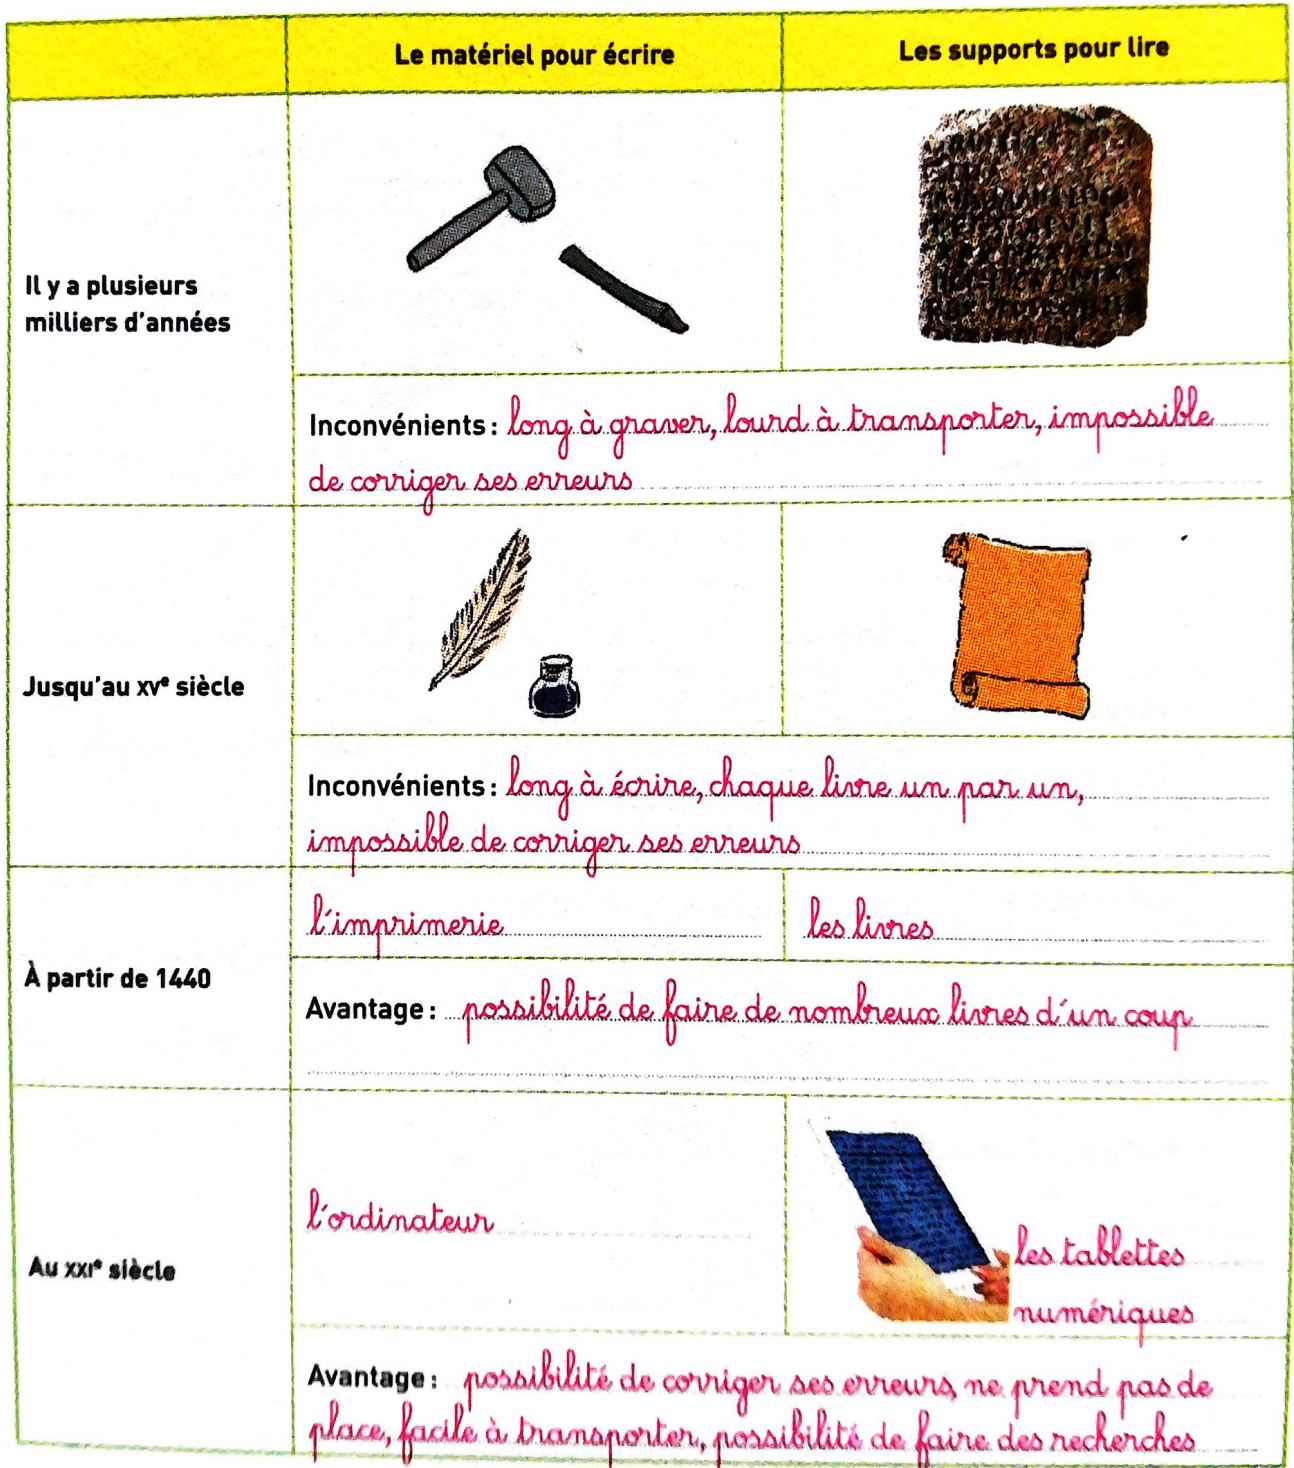 Le matériel pour écrire
Les supports pour lire
Il y a plusieurs
milliers d'années
Inconvénients : long à graver, lourd à transporter, impossible
de corriger ses erreurs
Jusqu'au XVe siècle
Inconvénients : long à écrire, chaque livre un par un,
impossible de corriger ses erreurs
À partir de 1440
l'imprimerie
les livres
Avantage : possibilité de faire de nombreux livres d'un coup
Au XXIe siècle
l'ordinateur
les tablettes
numériques
Avantage : possibilité de corriger ses erreurs, ne prend pas de
place, facile à transporter, possibilité de faire des recherches